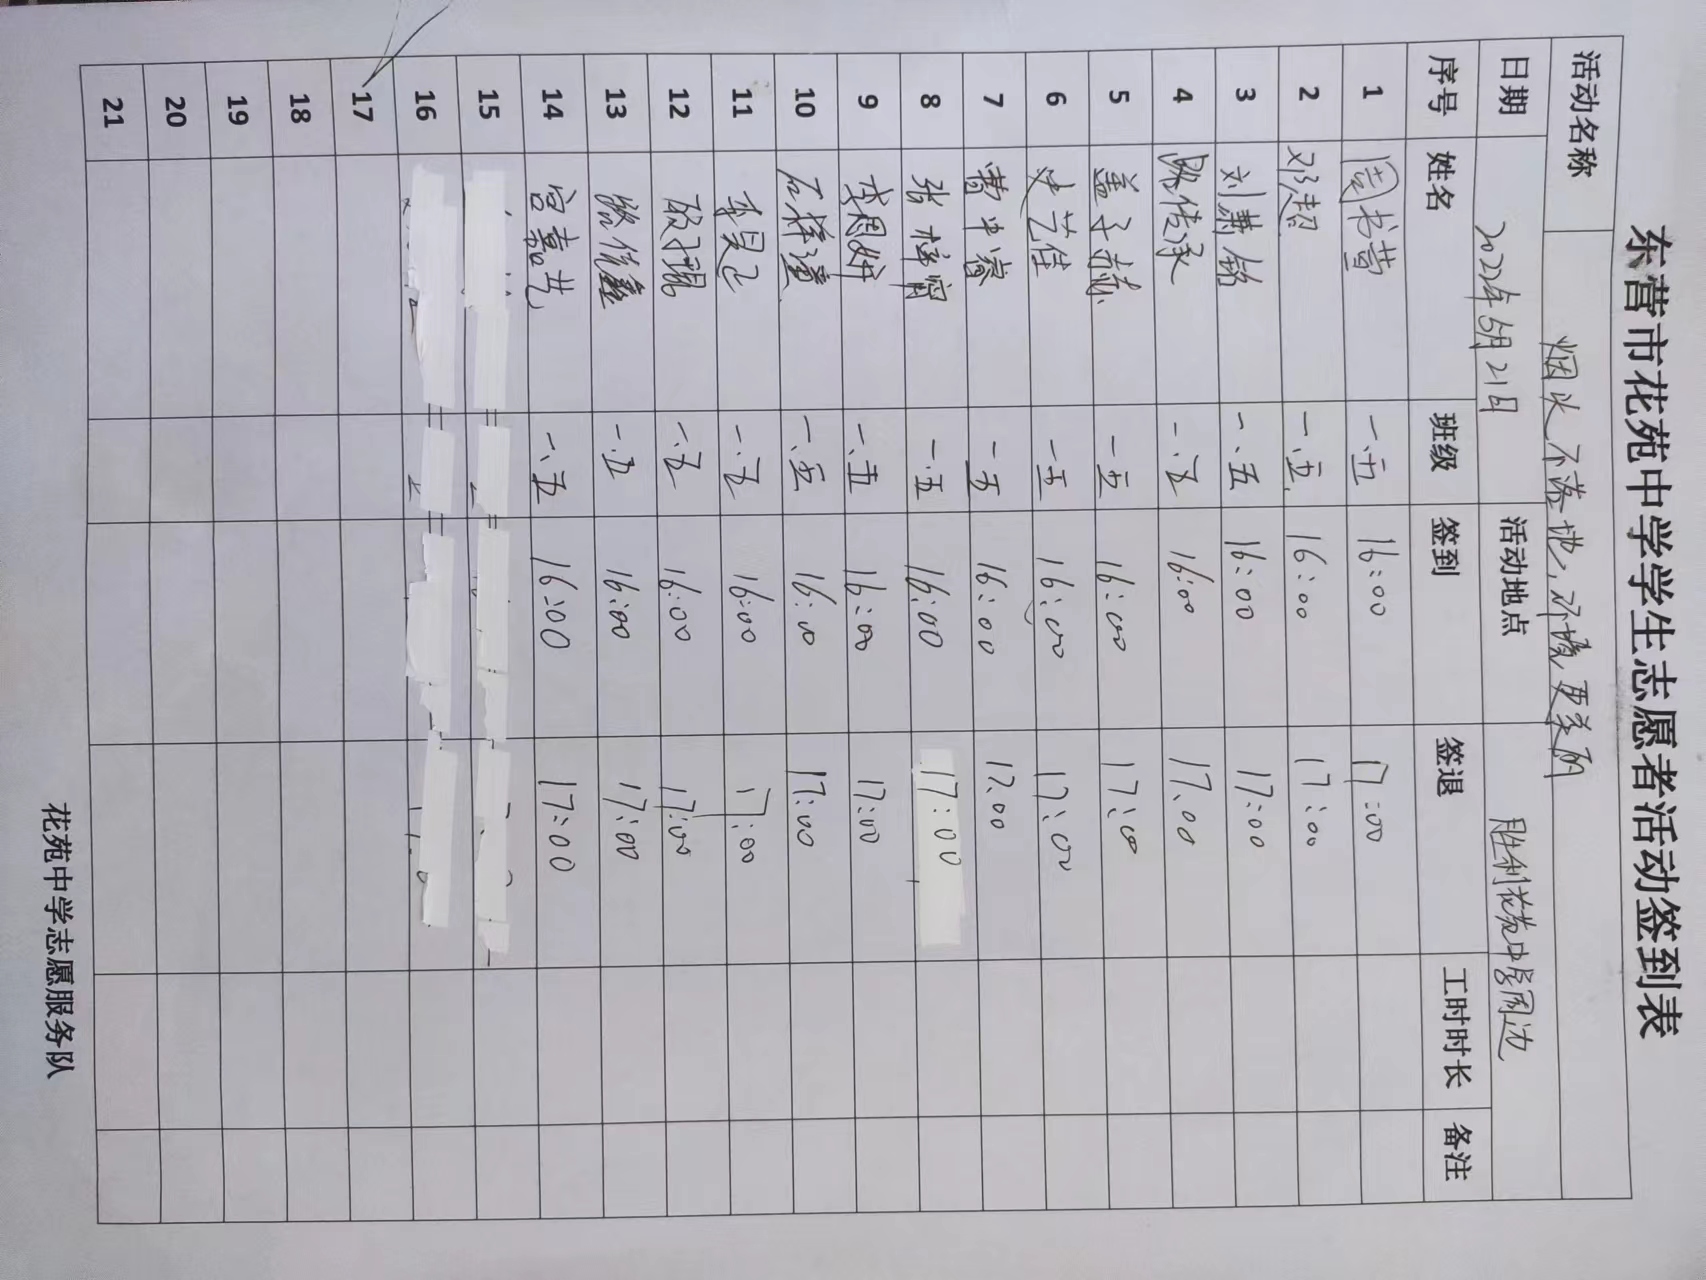 东营市花苑中学学生志愿者活动签到表
活动名称 烟头不落地,环境更美丽
日期 2022年6月21日 活动地点 胜利花苑中学周边
序号 姓名 班级 签到 签退 工时时长 备注
1 周书营 一.五 16:00 17:00
2 邓超 一.五 16:00 17:00
3 刘萧铭 一.五 16:00 17:00
4 陈传承 一.五 16:00 17:00
5 盖子赫 一五 16:00 17:00
6 史艺佳 一五 16:00 17:00
7 曹中睿 一五 16:00 17:00
8 张梓甯 一.五 16:00 17:00
9 李思妍 一.五 16:00 17:00
10 石梓潼 一.五 16:00 17:00
11 一.五 16:00 17:00
12 一.五 16:00 17:00
13 一.五 16:00 17:00
14 宫嘉艺 一.五 16:00 17:00
15
16
17
18
19
20
21
花苑中学志愿服务队